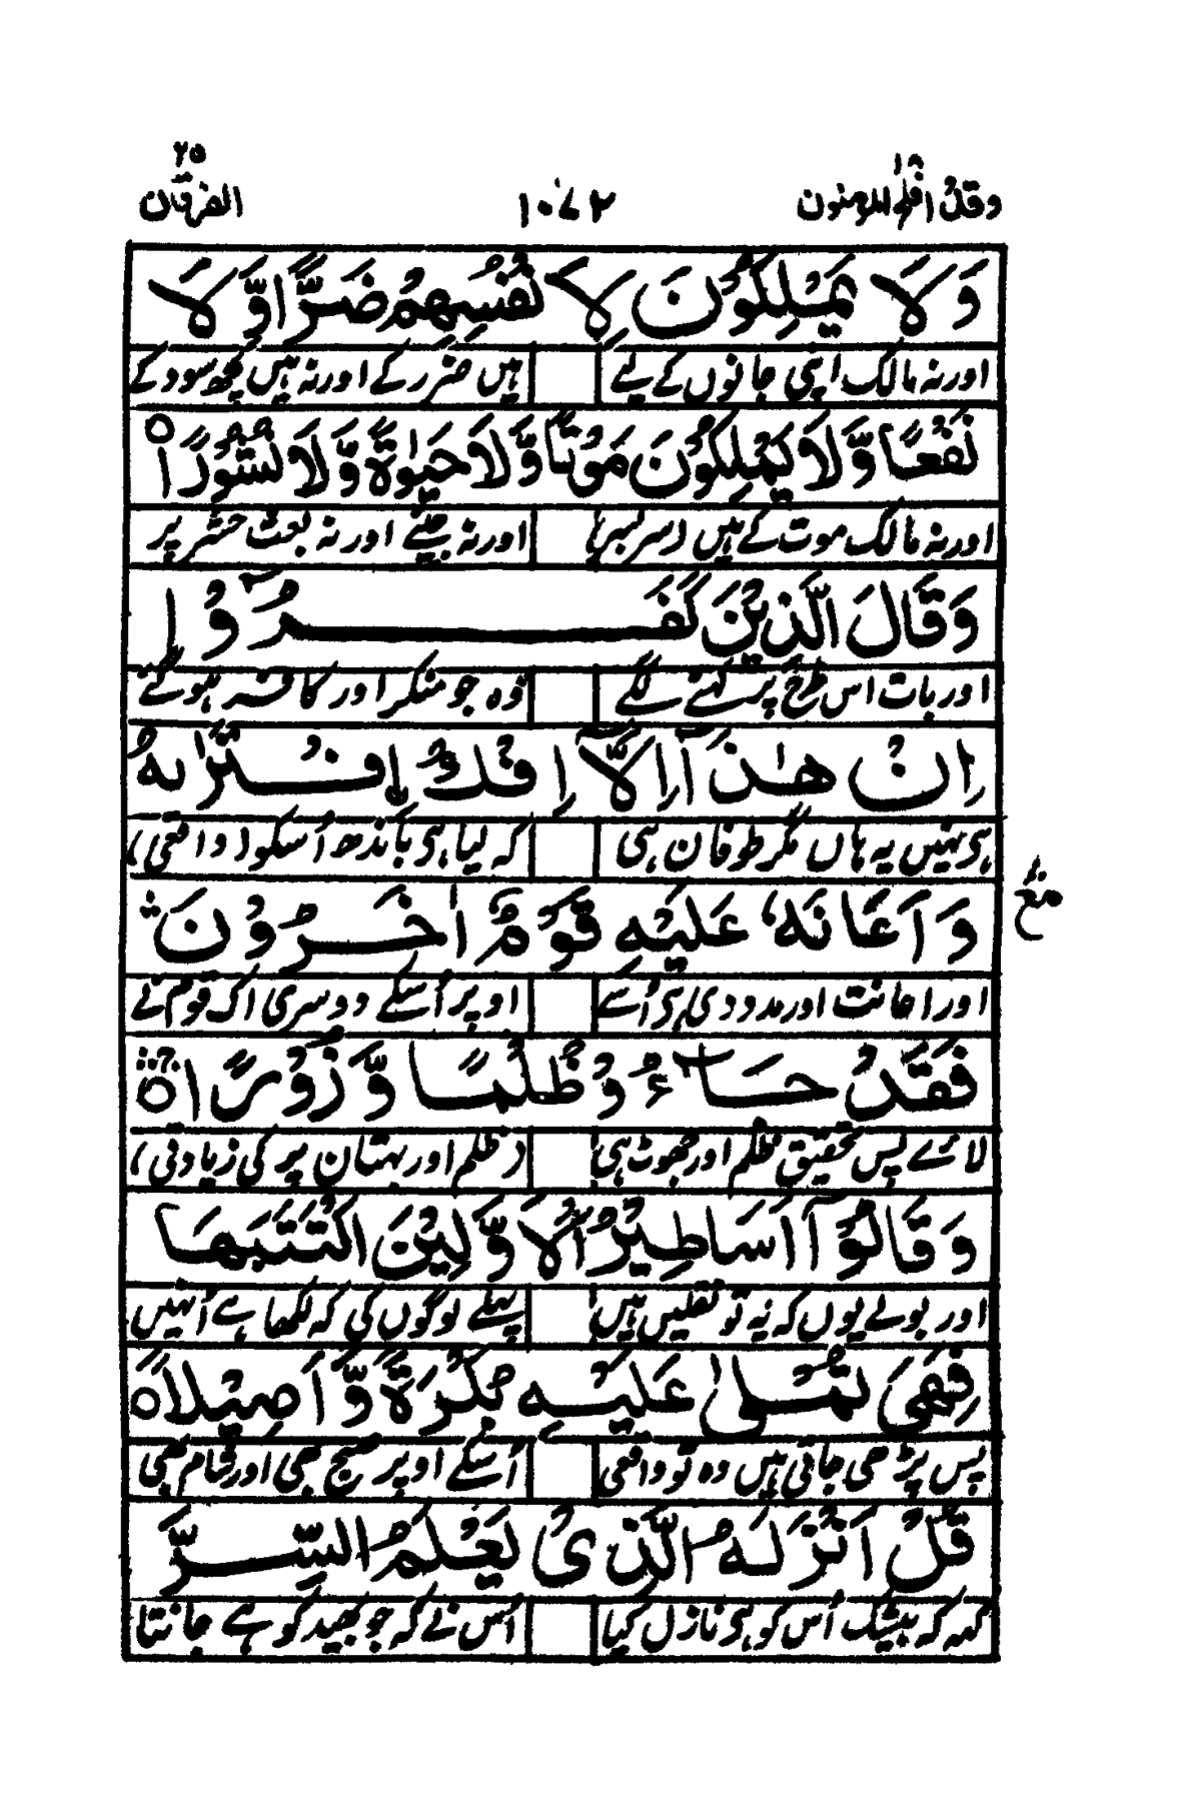 وقد افلح المؤمنون ۱۸ ۱۰۷۲ الفرقان ۲۵
وَلَا يَمْلِكُوْنَ لِاَ نْفُسِهِمْ ضَرًّا وَّ لَا
اور نہ مالک اپنی جانوں کے لیے ہیں ضرر کے اور نہ ہیں کچھ سود کے
نَفْعًا وَّلَا يَمْلِكُوْنَ مَوْتًا وَّلَا حَيٰوةً وَّلَا نُشُوْرًا ○
اور نہ مالک موت کے ہیں (سر بسر) اور نہ جینے اور نہ بعث حشر پر
وَقَالَ الَّذِيْنَ كَفَرُوْٓا
اور بات اس طرح پر کہنے لگے وہ جو منکر اور کافر ہوگئے
اِنْ هٰذَآ اِلَّآ اِفْكُ ِۨافْتَرٰىهُ
ہی نہیں یہ ہاں مگر طوفان ہی کہ لیا ہی باندھ اُسکو (واقعی)
وَ اَعَانَهٗ عَلَيْهِ قَوْمٌ اٰخَرُوْنَ ۛ
مع
اور اعانت اور مدد دی ہی اُسے اوپر اُسکے دوسری اک قوم نے
فَقَدْ جَآءُوْ ظُلْمًا وَّ زُوْرًا ○ۛ
لائے پس تحقیق ظلم اور جھوٹ ہی (ظلم اور بہتان پر کی زیادتی)
وَ قَالُوْٓا اَسَاطِيْرُ الْاَوَّلِيْنَ اكْتَتَبَهَا
اور بولے یوں کہ یہ تو نقلیں ہیں پہلے لوگوں کی کہ لکھا ہے اُنہیں
فَهِيَ تُمْلٰى عَلَيْهِ بُكْرَةً وَّ اَصِيْلًا ○
پس پڑھی جاتی ہیں وہ تو واقعی اُسکے اوپر صبح بھی اور شام بھی
قُلْ اَنْزَلَهُ الَّذِيْ يَعْلَمُ السِّرَّ
کہہ کہ بیشک اُس کو ہی نازل کیا اُس نے کہ جو بھید کو ہے جانتا